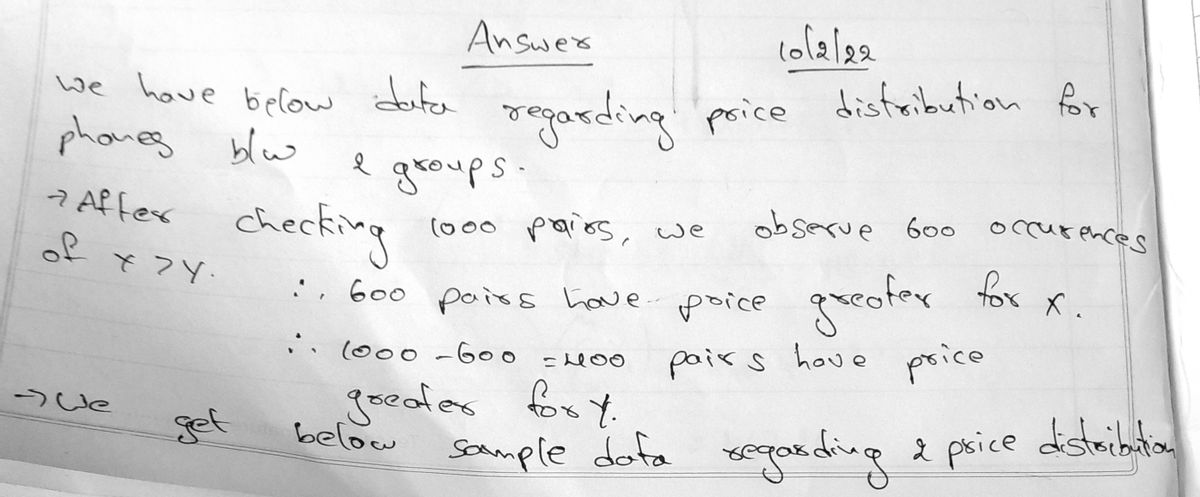 Answer 10/2/22
we have below data regarding price distribution for
phones b/w 2 groups.
→ After checking 1000 pairs, we observe 600 occurences
of x > y.
∴ 600 pairs have price greater for x.
∴ 1000 - 600 = 400 pairs have price
greater for y.
→ we get below sample data regarding 2 price distribution